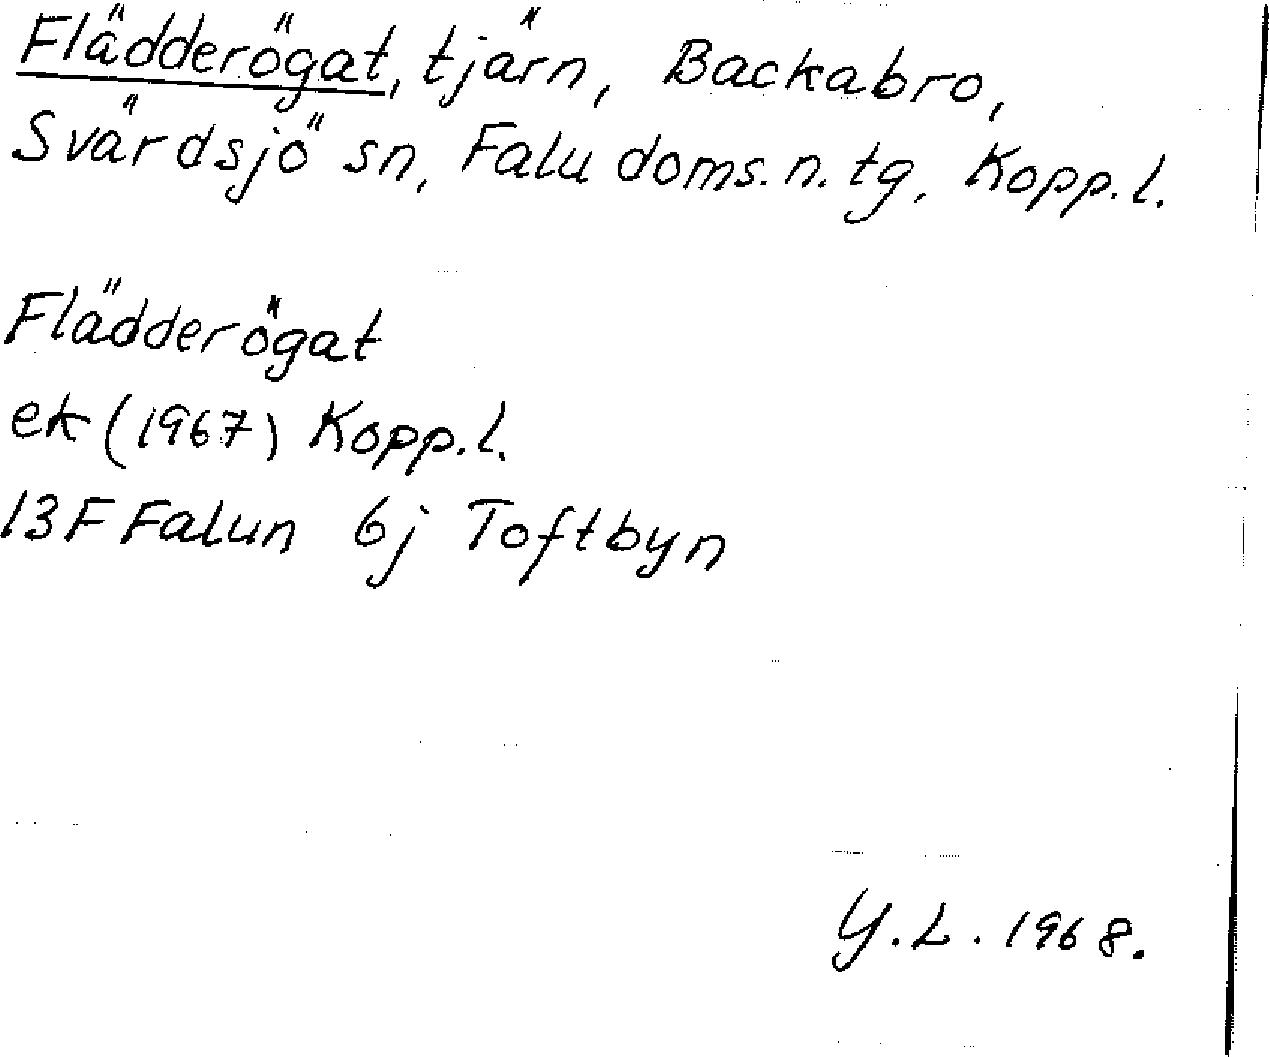 Flädderögat, tjärn, Backabro,
Svärdsjö sn, Falu doms.n.tg, Kopp.l.
Flädderögat
ek (1967) Kopp.l.
13F Falun 6j Toftbyn
Y.L. 1968.